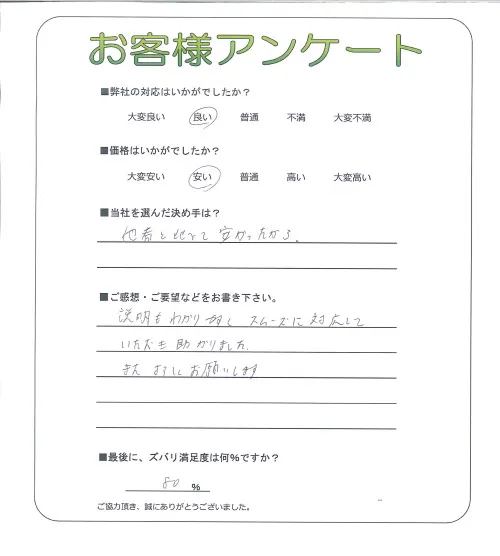 お客様アンケート
■弊社の対応はいかがでしたか？
大変良い 良い 普通 不満 大変不満
■価格はいかがでしたか？
大変安い 安い 普通 高い 大変高い
■当社を選んだ決め手は？
他者と比べて安かったから.
■ご感想・ご要望などをお書き下さい。
説明もわかり易く スムーズに対応して
いただき助かりました.
また よろしくお願いします
■最後に、ズバリ満足度は何%ですか？
80 %
ご協力頂き、誠にありがとうございました。